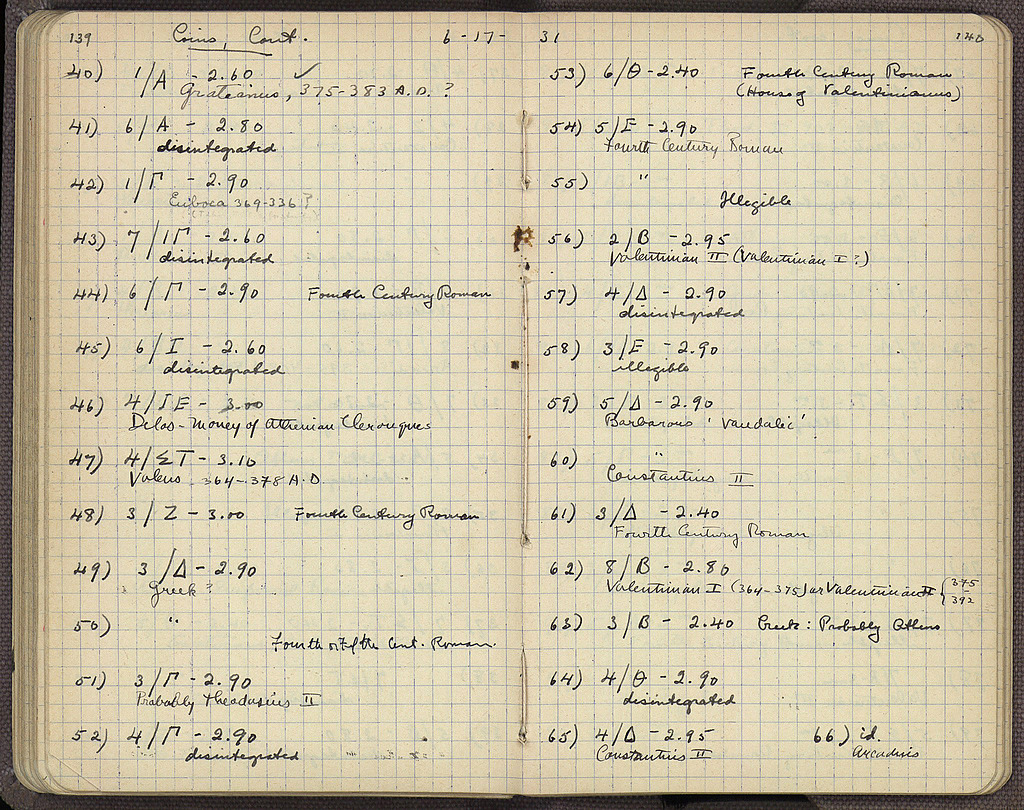 139 Coins, Cont. 6-17-
40) 1/A - 2.60 ✓
Gratianus, 375-383 A.D. ?
41) 6/A - 2.80
disintegrated
42) 1/Γ - 2.90
Euboea 369-336?
43) 7/IΓ - 2.60
disintegrated
44) 6/Γ - 2.90 Fourth Century Roman
45) 6/I - 2.60
disintegrated
46) 4/IE - 3.00
Delos - money of Athenian Clerouques
47) 4/ΣT - 3.10
Valens 364-378 A.D
48) 3/Z - 3.00 Fourth Century Roman
49) 3/Δ - 2.90
Greek?
50) "
Fourth or Fifth Cent. Roman.
51) 3/Γ - 2.90
Probably Theodosius II
52) 4/Γ - 2.90
disintegrated
31 140
53) 6/Θ - 2.40 Fourth Century Roman
(House of Valentinianus)
54) 5/E - 2.90
Fourth Century Roman
55) "
Illegible
56) 2/B - 2.95
Valentinian II (Valentinian I?)
57) 4/Δ - 2.90
disintegrated
58) 3/E - 2.90
illegible
59) 5/Δ - 2.90
Barbarous 'Vandalic'
60) "
Constantius II
61) 3/Δ - 2.40
Fourth Century Roman
62) 8/B - 2.80
Valentinian I (364-375) or Valentinian II {375-392
63) 3/B - 2.40 Greek: Probably Athens
64) 4/Θ - 2.90
disintegrated
65) 4/Δ - 2.95 66) id.
Constantius II Arcadius